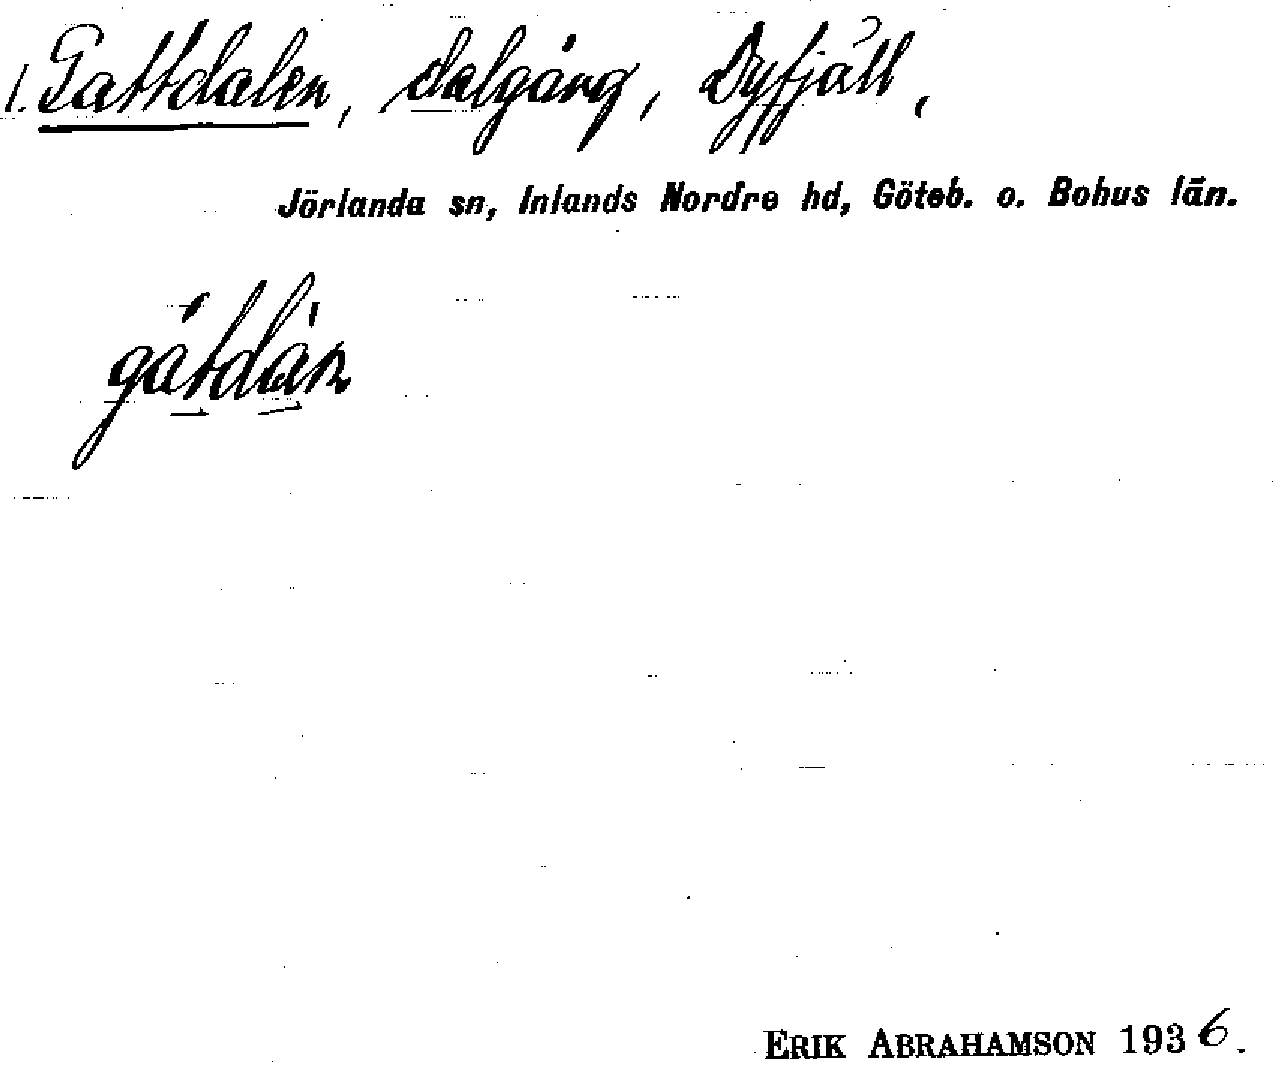 1. Gattdalen, dalgång, Dyfjäll,
Jörlanda sn, Inlands Nordre hd, Göteb. o. Bohus län.
gátdàn
ERIK ABRAHAMSON 1936.